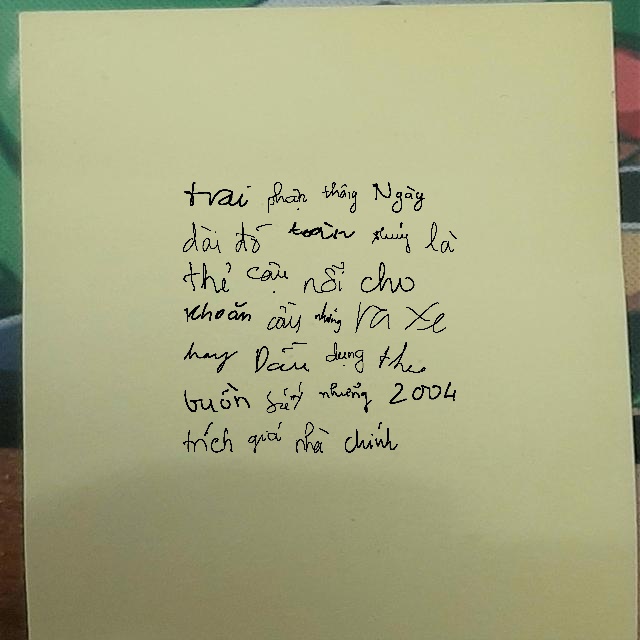 trai phận thắng Ngày
dài đố toàn là
thẻ cậu nổi cho
khoăn cầu những ra xe
hay Dầu dụng theo
buồn nhưng 2004
trích quá nhà chính